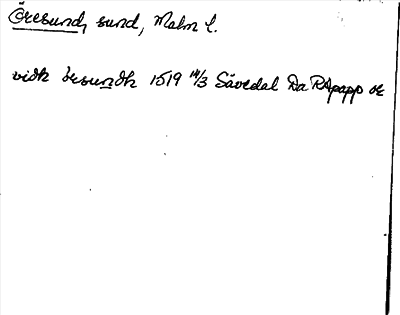 Öresund, sund, Malm l.
vidh öresundh 1519 14/3 Sävedal Da RApapp or